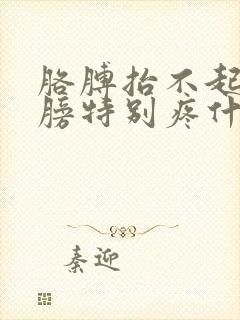 胳膊抬不起
膀特别疼什
秦迎